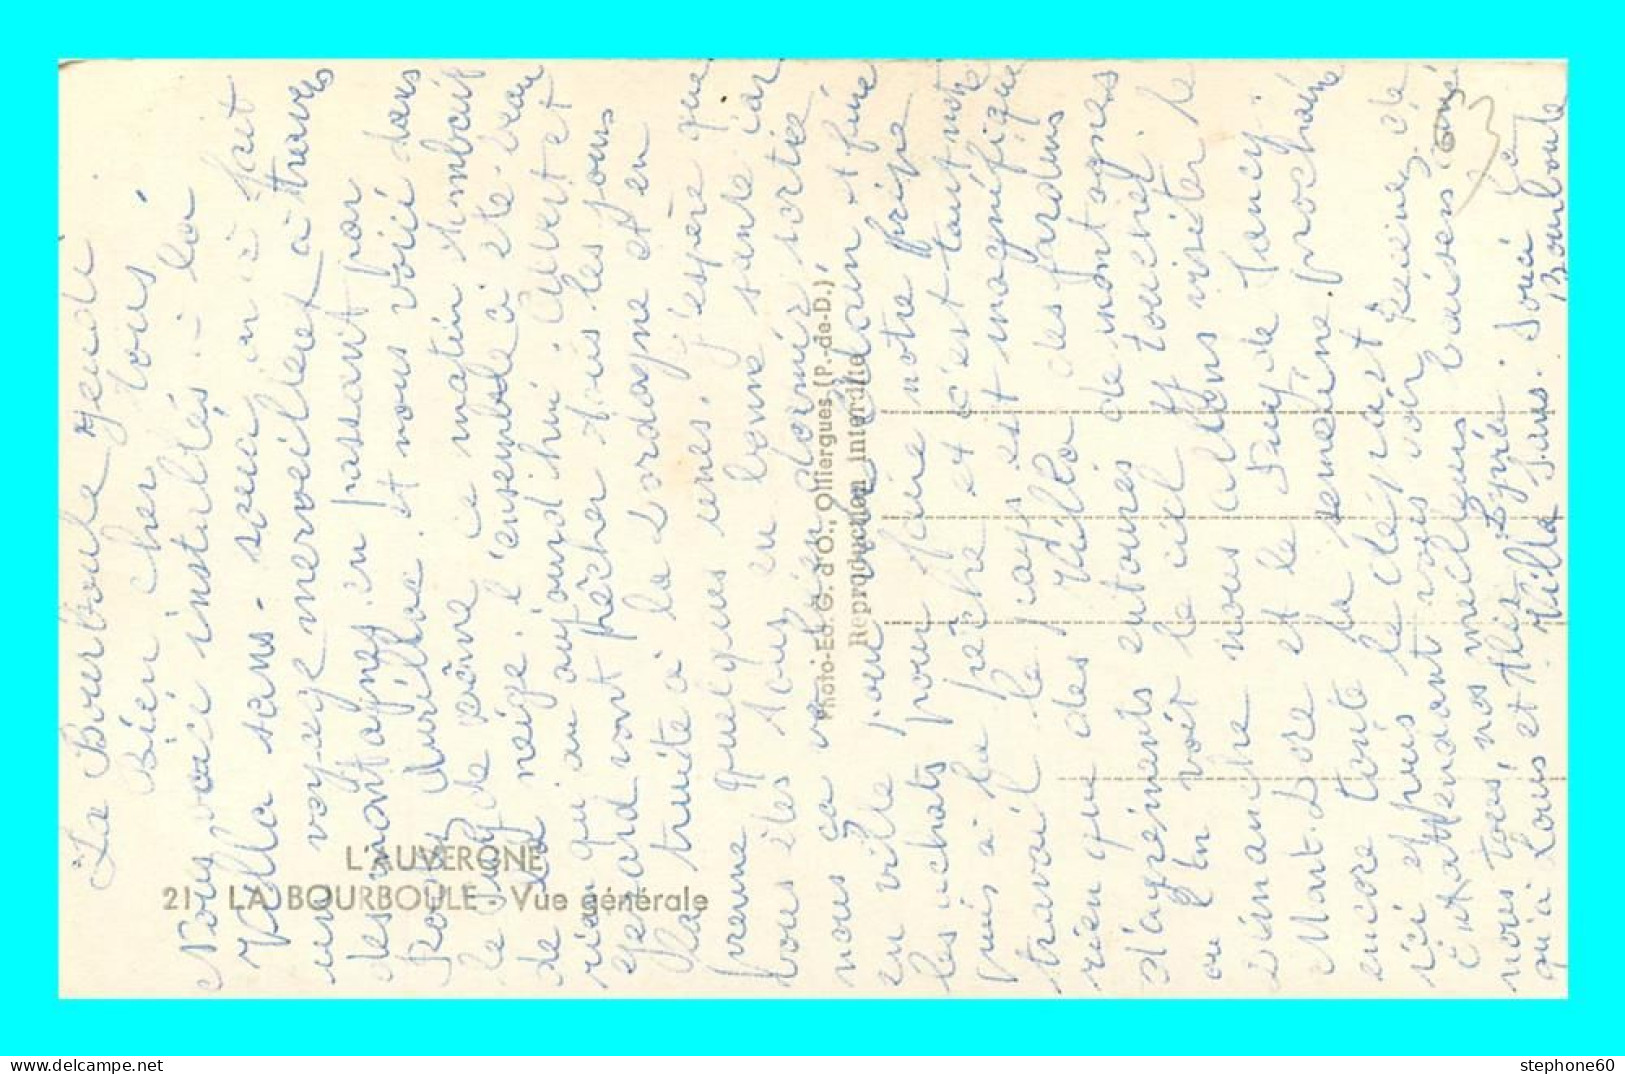 La Bourboule Jeudi
Bien cher tous,
Nous voici installés à la
Villa sans-souci on a fait
un voyage merveilleux à travers
des montagnes en passant par
Aurillac. et nous voici dans
le de ce matin tombait
de la neige. l'ensemble a été beau
rien qu'au aujourd'hui Albert et
Gérard vont pêcher tous les jours
la truite à la Dordogne et en
prenne quelques unes. J'espère que
vous êtes tous en bonne santé car
nous ça va bien sortie
en ville pour loin
les achats pour faire notre
puis à la pêche et c'est tout notre
travail le pays est magnifique
rien que des Villa des jardins
d'agréments entourés de montagnes
ou l'on voit le ciel
Dimanche nous allons visiter le
Mont-Dore et le Puy de Sancy.
encore toute la semaine prochaine
ici et puis le départ
En attendant vous voir recevez de
nous tous, nos meilleurs baisers
qu'à Lous et
Villa Sans-Souci La
Bourboule
L'AUVERGNE
21 LA BOURBOULE - Vue générale
Photo-Ed. G. d'O., Olliergues (P.-de-D.)
Reproduction Interdite
stephone60